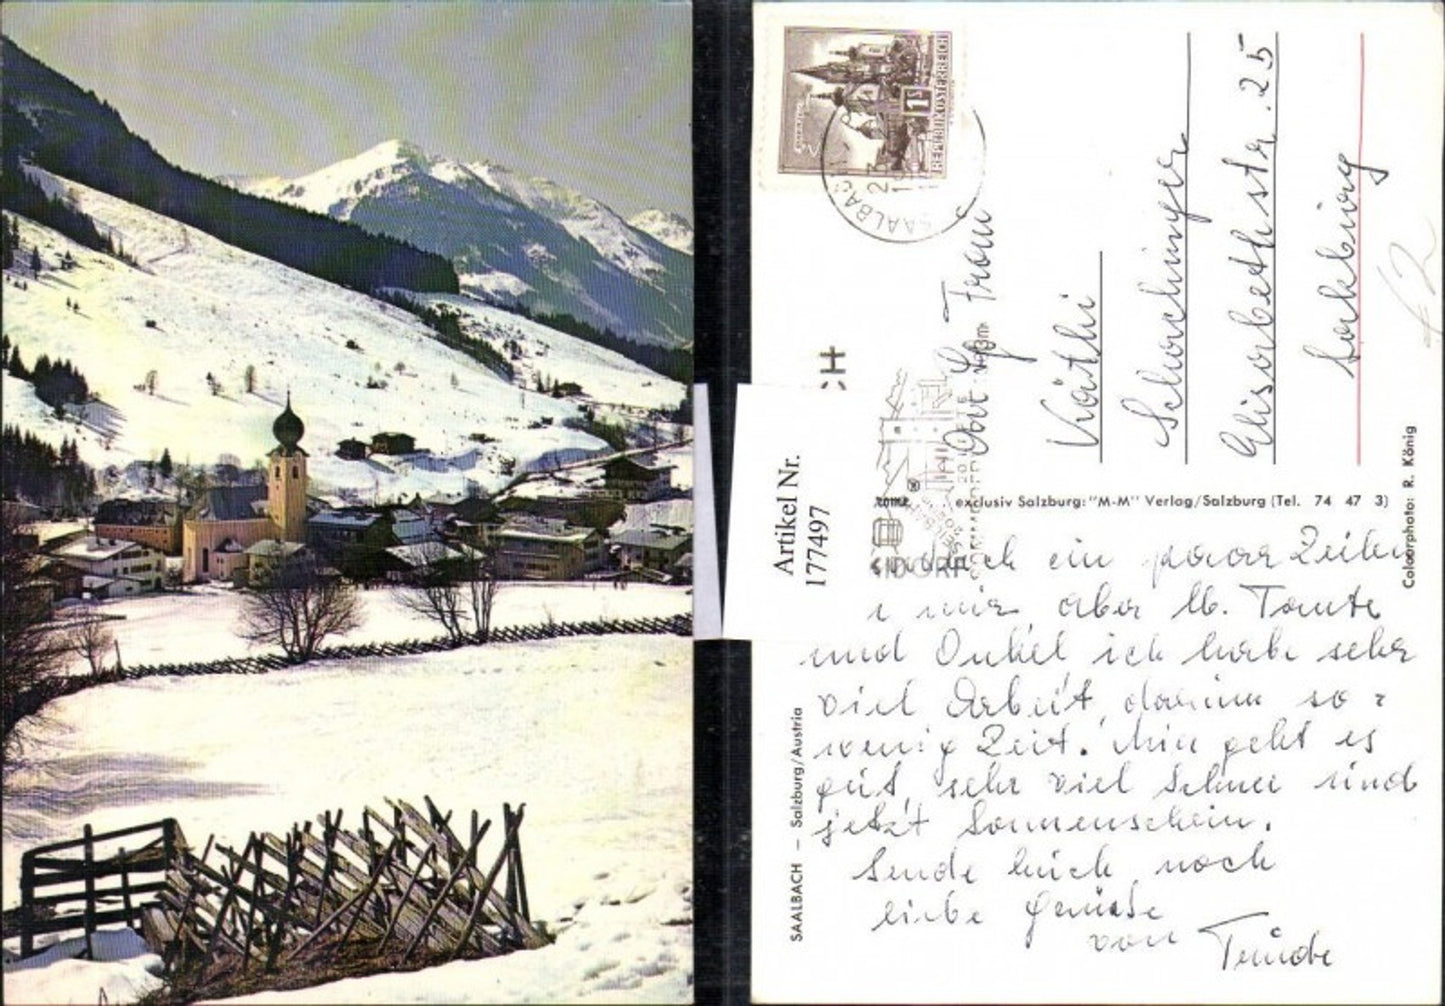 REPUBLIK ÖSTERREICH
1S
SAALBACH
23
SAALBACH
CH
Artikel Nr.
177497
Frau
Käthi
Schachinger
Elisarbethstr. 25
Salzburg
exclusiv Salzburg: "M-M" Verlag/Salzburg (Tel. 74 47 3)
Colourphoto: R. König
SAALBACH — Salzburg/Austria
ein paar Zeilen
mir, aber lb. Tante
und Onkel ich habe sehr
viel Arbeit, darum so
wenig Zeit. Mir geht es
gut, sehr viel Schnee und
jetzt Sonnenschein.
Sende Euch noch
liebe Grüße
von Trude